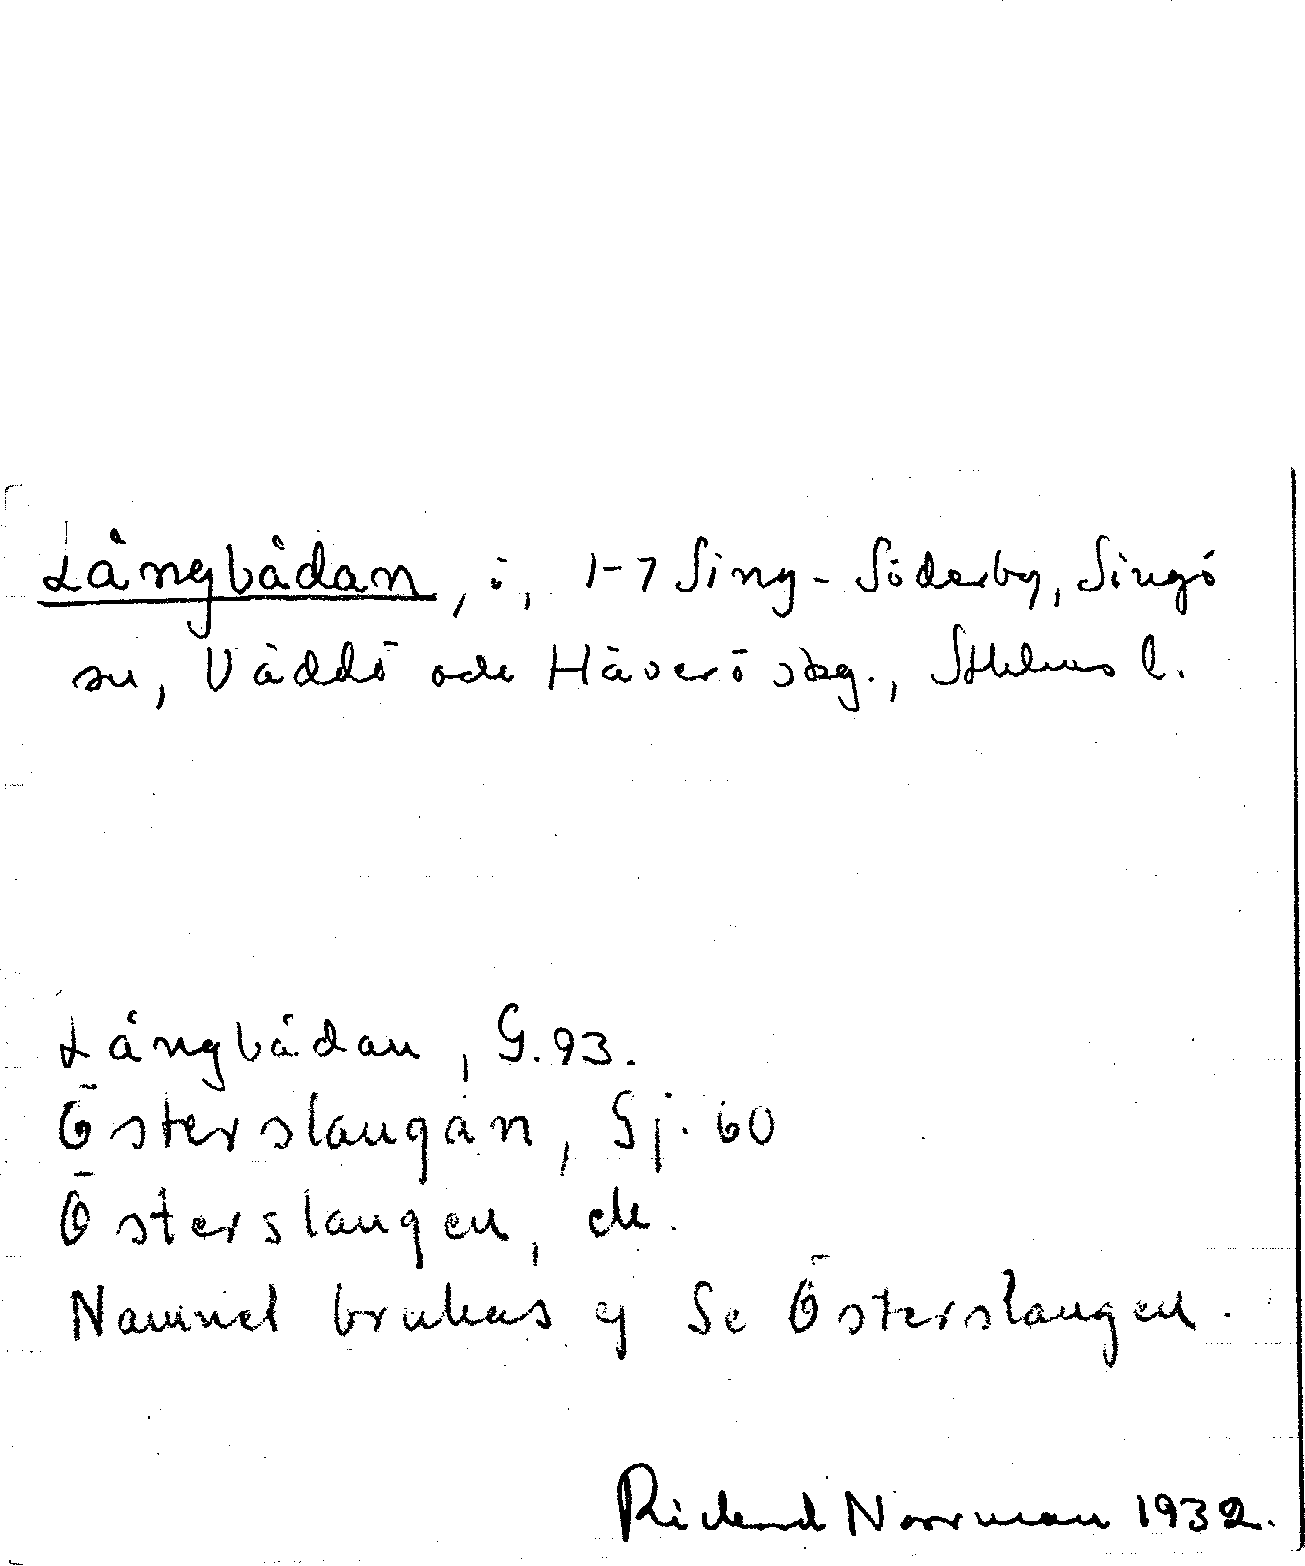 Långbådan, ö, 1-7 Sing-Söderby, Singö
sn, Väddö och Häverö skg., Sthlms l.
Långbådan, G. 93.
Österslangan, Sj. 60
Österslangen, ek.
Namnet brukas ej Se Österslangen.
Rickard Norrman 1932.